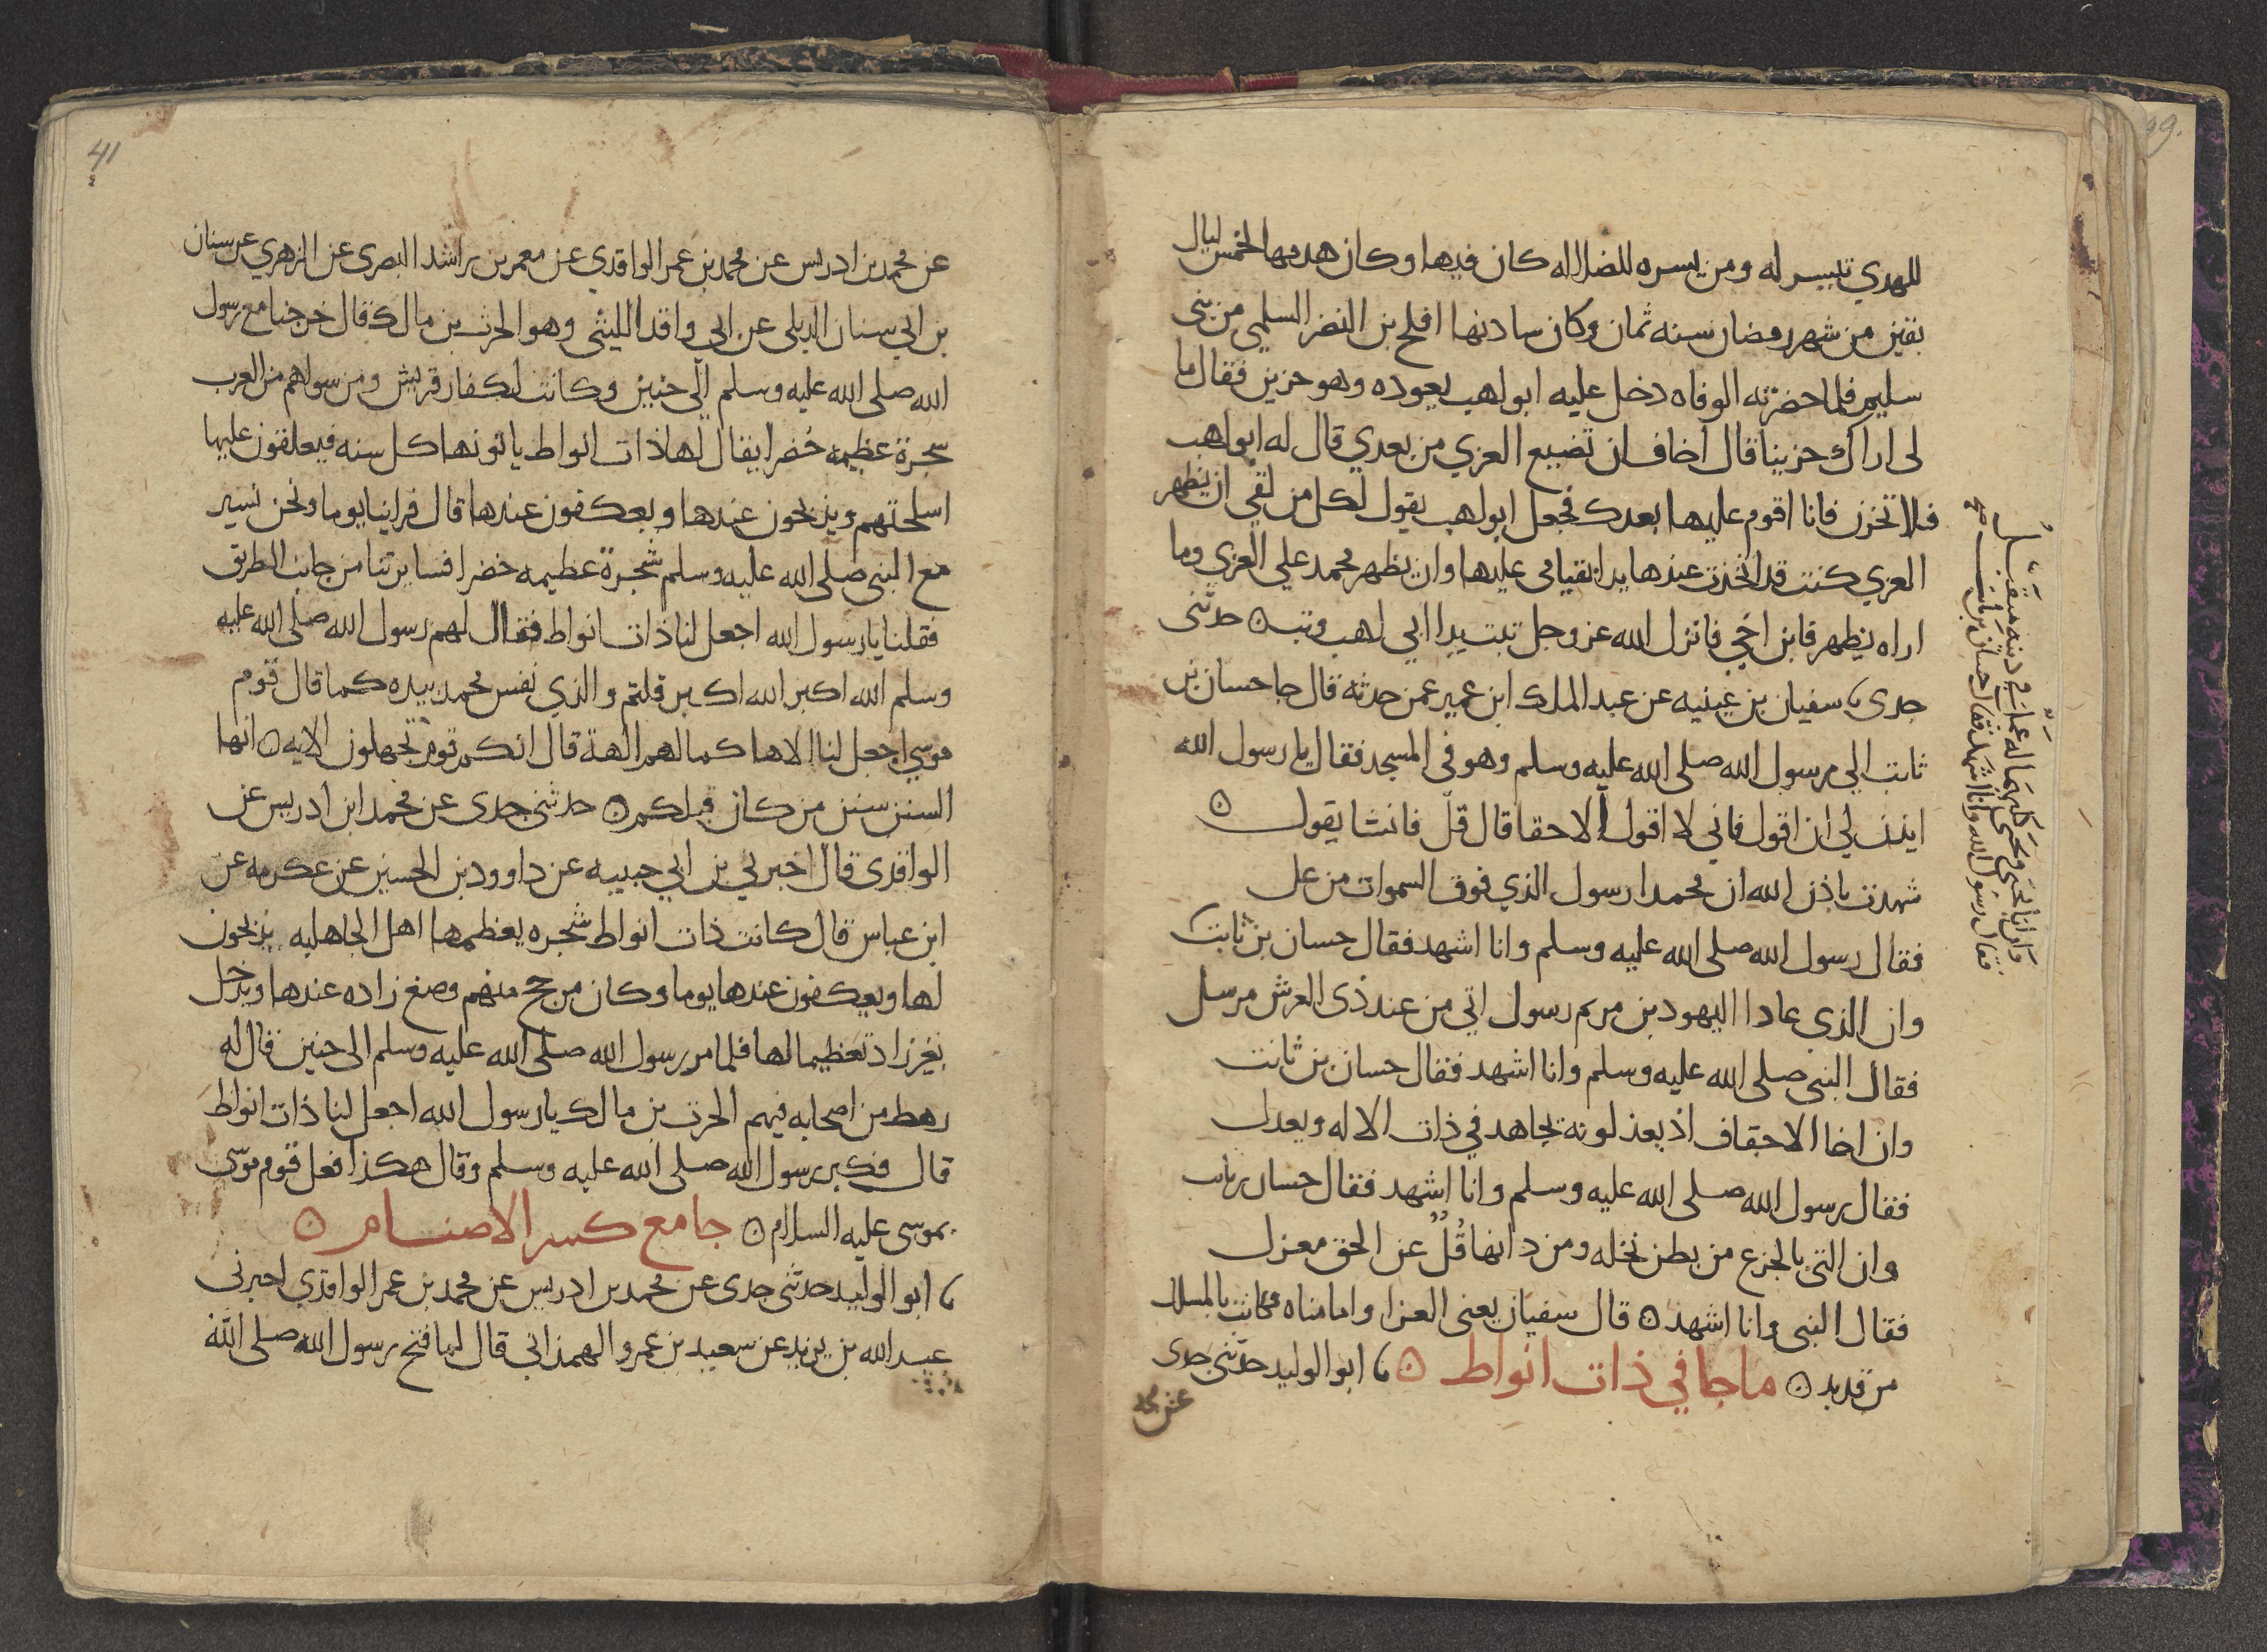 للهدي تيسر له ومن يسره للضلاله كان فيها وكان هدمها لخمس ليال
بقين من شهر رمضان سنه ثمان وكان سادنها افلح بن النضر السلمي من بنى
سليم فلما حضرته الوفاه دخل عليه ابو لهب يعوده وهو حزين فقال ما
لى اراك حزينا قال اخاف ان تضيع العزي من بعدي قال له ابو لهب
فلا تحزن فانا اقوم عليها بعدك فجعل ابو لهب يقول لكل من لقي ان تظهر
العزي كنت قد اتخذت عندها يدا بقيامى عليها وان يظهر محمد علي العزي وما
اراه يظهر فابن اخي فانزل الله عز وجل تبت يدا ابي لهب وتب ۝ حدثنى
جدى ثنا سفيان بن عيينه عن عبد الملك ابن عمير عمن حدثه قال جا حسان بن
ثابت الي رسول الله صلى الله عليه وسلم وهو فى المسجد فقال يا رسول الله
ايذن لي ان اقول فاني لا اقول الا حقا قال قل فانشا يقول ۝
شهدت باذن الله ان محمدا رسول الذي فوق السموات من عل
فقال رسول الله صلى الله عليه وسلم وانا اشهد فقال حسان بن ثابت
وان الذي عادا اليهود بن مريم رسول اتي من عند ذى العرش مرسل
فقال النبى صلى الله عليه وسلم وانا اشهد فقال حسان بن ثابت
وان اخا الاحقاف اذ يعذلونه يجاهد في ذات الاله ويعدل
فقال رسول الله صلى الله عليه وسلم وانا اشهد فقال حسان بن ثابت
وان التى بالجزع من بطن نخله ومن دانها قُلٌ عن الحق معزل
فقال النبى وانا اشهد ۝ قال سفيان يعنى العزا واما مناه فكانت بالمسلل
من قديد ۝ ما جا في ذات انواط ۝ ثنا ابو الوليد حدثنى جدى
عن محمد
وان ابا يحيى ويحيى كليهما له عمل في دينه متقبل
فقال رسول الله وانا اشهد فقال حسان بن ثابت صح
41
عن محمد بن ادريس عن محمد بن عمر الواقدي عن معمر بن راشد البصرى عن الزهري عن سنان
بن ابي سنان الديلى عن ابى واقد الليثى وهو الحرث بن مالك قال خرجنا مع رسول
الله صلى الله عليه وسلم الى حنين وكانت لكفار قريش ومن سواهم من العرب
شجرة عظيمه خضرا يقال لها ذات انواط ياتونها كل سنه فيعلقون عليها
اسلحتهم ويذبحون عندها ويعكفون عندها قال فراينا يوما ونحن نسير
مع النبى صلى الله عليه وسلم شجرة عظيمه خضرا فسايرتنا من جانب الطريق
فقلنا يا رسول الله اجعل لنا ذات انواط فقال لهم رسول الله صلى الله عليه
وسلم الله اكبر الله اكبر قلتم والذي نفس محمد بيده كما قال قوم
موسي اجعل لنا الاها كما لهم الهة قال انكم قوم تجهلون الايه ۝ انها
السنن سنن من كان قبلكم ۝ حدثنى جدى عن محمد ابن ادريس عن
الواقدى قال اخبرني بن ابي حبيبه عن داوود بن الحسين عن عكرمه عن
ابن عباس قال كانت ذات انواط شجره يعظمها اهل الجاهليه يذبحون
لها ويعكفون عندها يوما وكان من حج منهم وضع زاده عندها ويدخل
بغير زاد تعظيما لها فلما مر رسول الله صلى الله عليه وسلم الى حنين قال له
رهط من اصحابه فيهم الحرث بن مالك يا رسول الله اجعل لنا ذات انواط
قال فكبر رسول الله صلى الله عليه وسلم وقال هكذا فعل قوم موسى
بموسى عليه السلام ۝ جامع كسر الاصنام ۝
ثنا ابو الوليد حدثنى جدى عن محمد بن ادريس عن محمد بن عمر الواقدي اخبرنى
عبد الله بن يزيد عن سعيد بن عمرو الهمذاني قال لما فتح رسول الله صلى الله